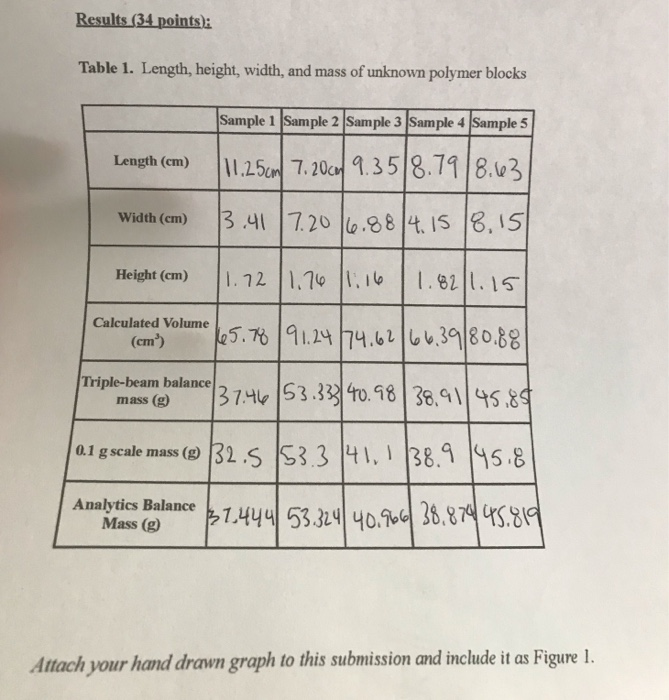 Results (34 points):
Table 1. Length, height, width, and mass of unknown polymer blocks
Sample 1 Sample 2 Sample 3 Sample 4 Sample 5
Length (cm) 11.25cm 7.20cm 9.35 8.79 8.63
Width (cm) 3.41 7.20 6.88 4.15 8.15
Height (cm) 1.72 1.76 1.16 1.82 1.15
Calculated Volume
(cm³) 65.78 91.24 74.62 66.39 80.88
Triple-beam balance
mass (g) 37.46 53.333 40.98 38.91 45.85
0.1 g scale mass (g) 32.5 53.3 41.1 38.9 45.8
Analytics Balance
Mass (g) 37.444 53.324 40.966 38.874 45.819
Attach your hand drawn graph to this submission and include it as Figure 1.